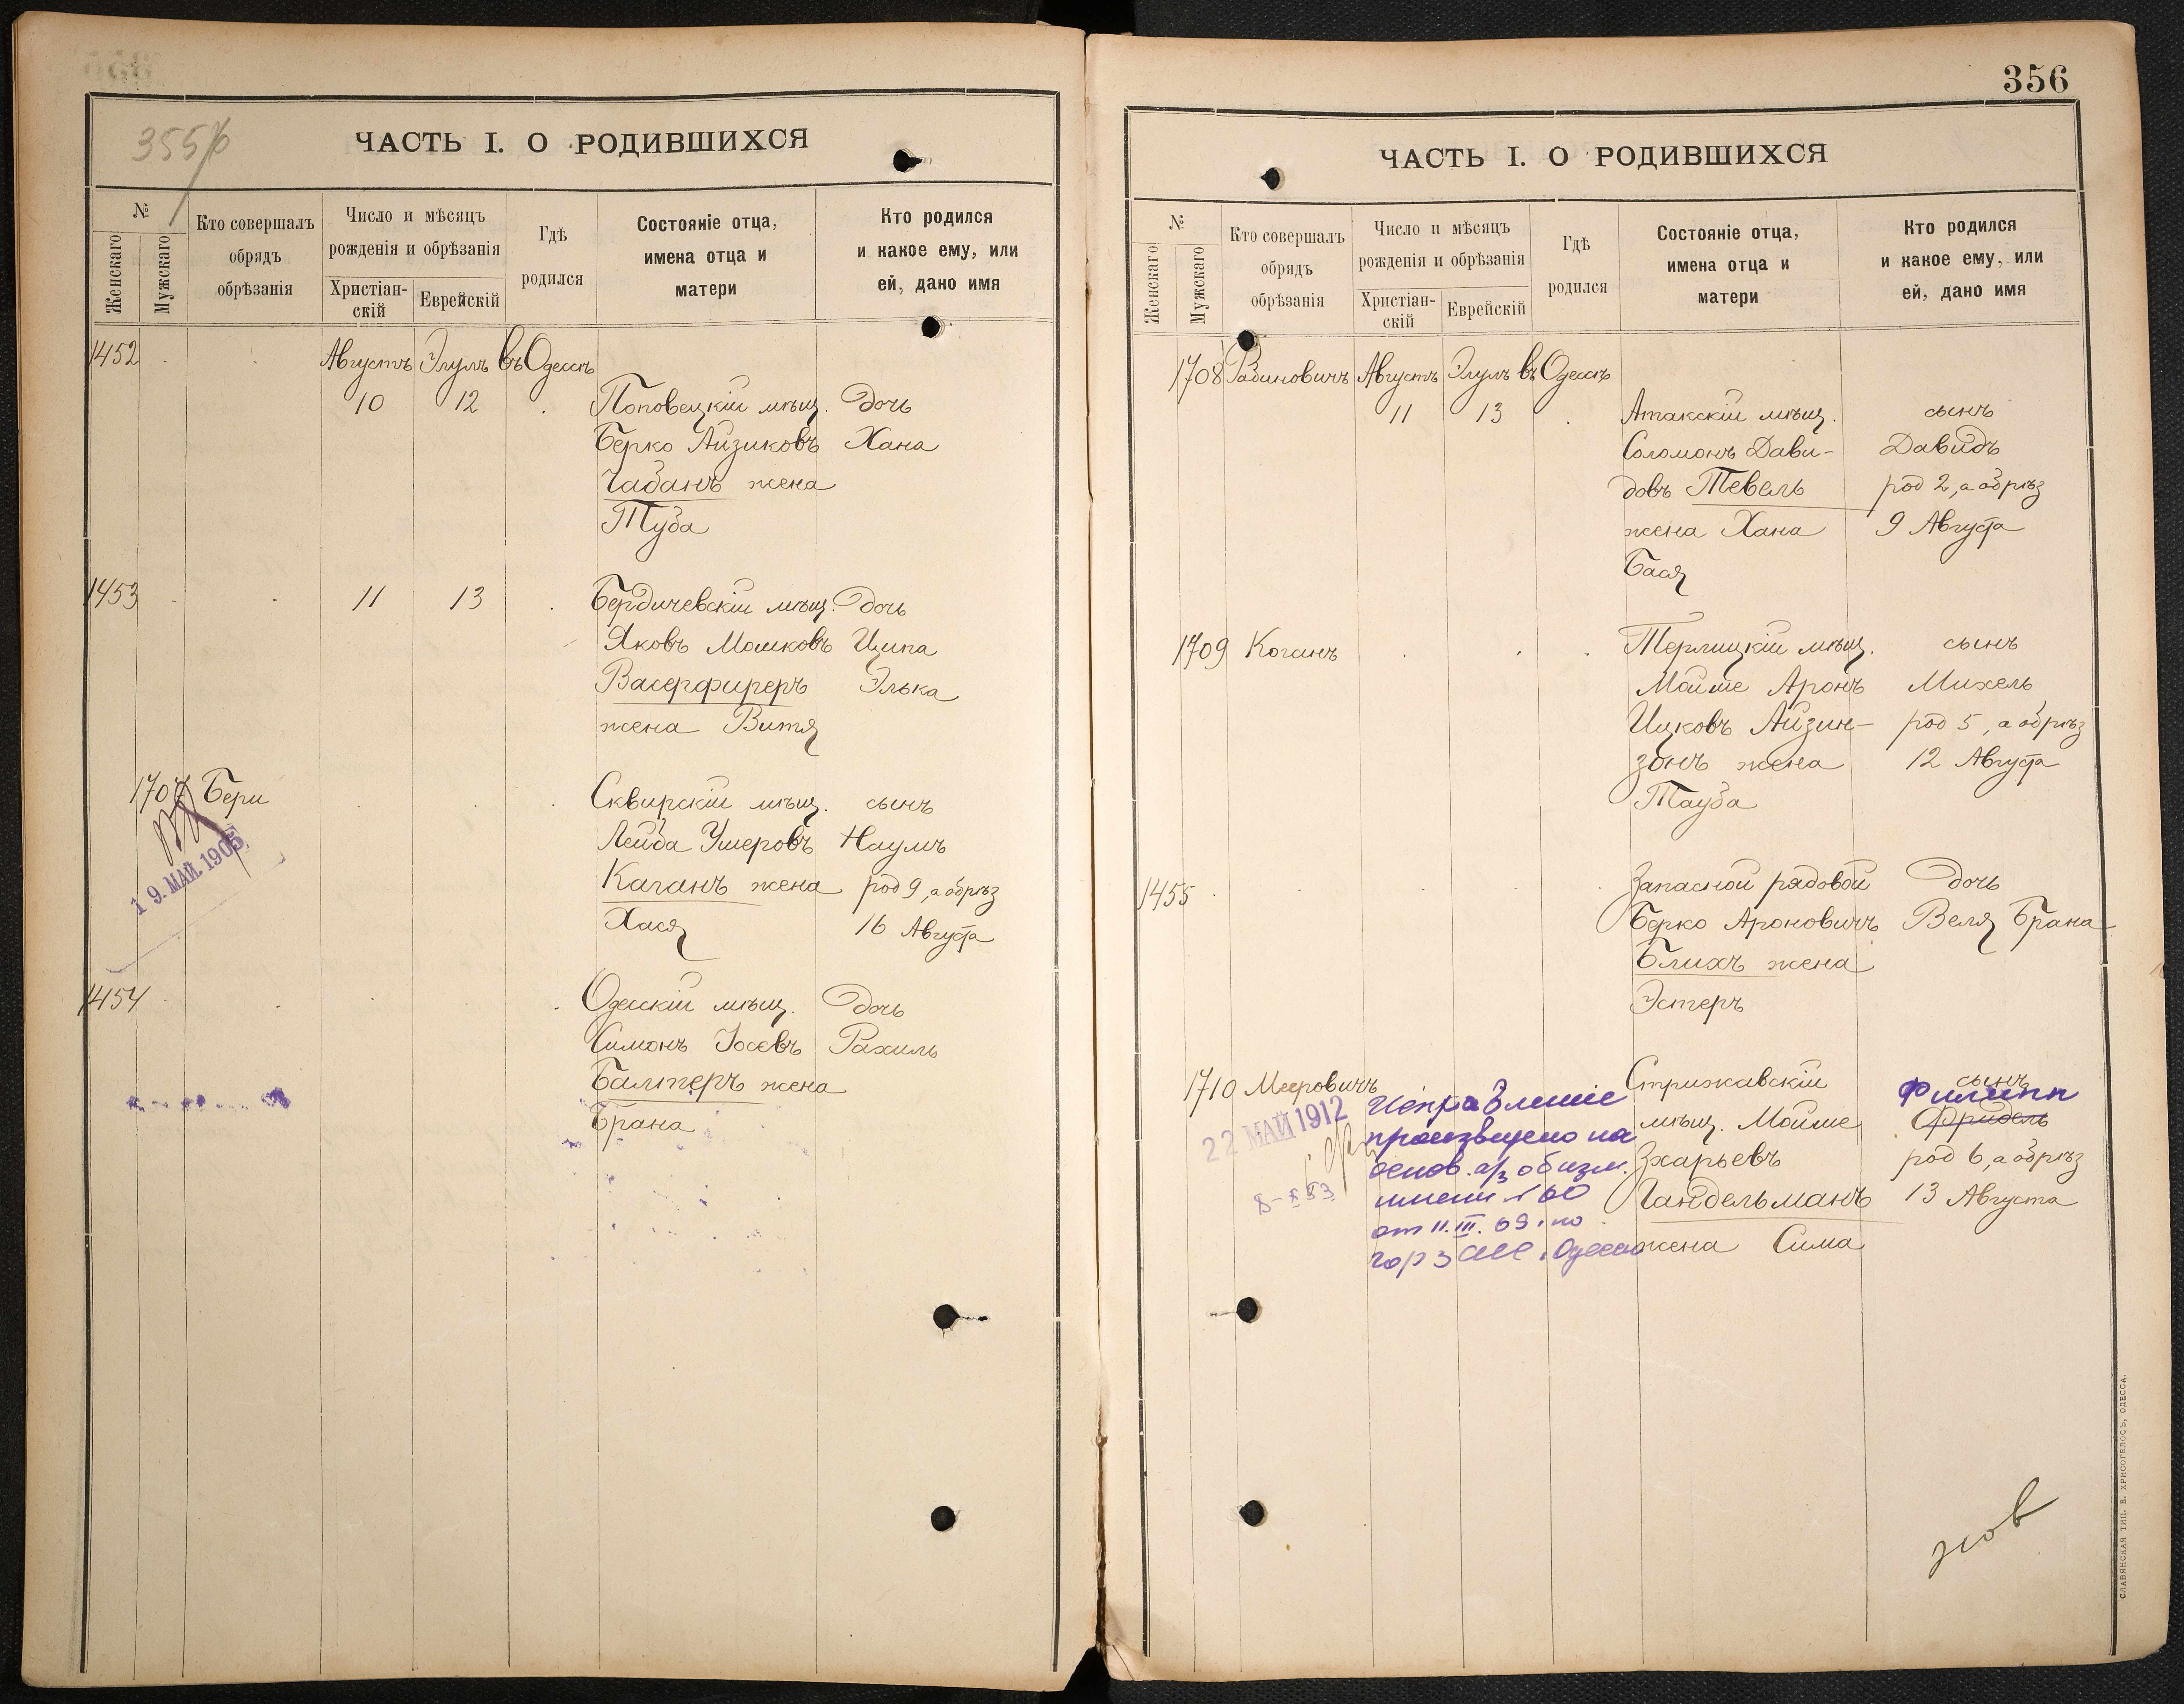 355 б
ЧАСТЬ I. О РОДИВШИХСЯ
№
Женскаго
Мужскаго
Кто совершалъ
обрядъ
обрѣзанія
Число и мѣсяцъ
рожденія и обрѣзанія
Христіан-
скій
Еврейскій
Гдѣ
родился
Состояніе отца,
имена отца и
матери
Кто родился
и какое ему, или
ей, дано имя
1452 Августъ Элулъ въ Одессѣ
10 12 Поповецкій мѣщ. дочь
Берко Айзиковъ Хана
Чабанъ жена
Туба
1453 11 13 Бердичевскій мѣщ. дочь
Яковъ Мошковъ Ципа
Васерфиреръ Элька
жена Витя
1707 Бери Сквирскій мѣщ. сынъ
Лейба Ушеровъ Наумъ
19. МАЙ. 1905
Каганъ жена род 9, а обрѣз
Хася 16 Августа
1454 Одесскій мѣщ. дочь
Симонъ Іосевъ Рахиль
Балтеръ жена
Брана
356
ЧАСТЬ I. О РОДИВШИХСЯ
№
Женскаго
Мужскаго
Кто совершалъ
обрядъ
обрѣзанія
Число и мѣсяцъ
рожденія и обрѣзанія
Христіан-
скій
Еврейскій
Гдѣ
родился
Состояніе отца,
имена отца и
матери
Кто родился
и какое ему, или
ей, дано имя
1708 Рабиновичъ Августъ Элулъ въ Одессѣ
11 13 Атакскій мѣщ. сынъ
Соломонъ Дави- Давидъ
довъ Тевель род 2, а обрѣз
жена Хана 9 Августа
Бася
1709 Коганъ Терлицкій мѣщ. сынъ
Мойше Аронъ Михель
Ицковъ Айзин- род 5, а обрѣз
зонъ жена 12 Августа
Тауба
1455 Запасной рядовой дочь
Берко Ароновичъ Веля Брана
Блихъ жена
Эстеръ
1710 Мееровичъ Стрижавскій сынъ
Филипп
мѣщ. Мойше Фридель
Зхарьевъ род 6, а обрѣз
Гандельманъ 13 Августа
жена Сима
22 МАЙ 1912
Исправление
произведено на
основ. а/з об изм.
имени № 60
от 11.III.69 г по
гор ЗАГС г. Одессы
СЛАВЯНСКАЯ ТИП. Е. ХРИСОГЕЛОСЪ, ОДЕССА.